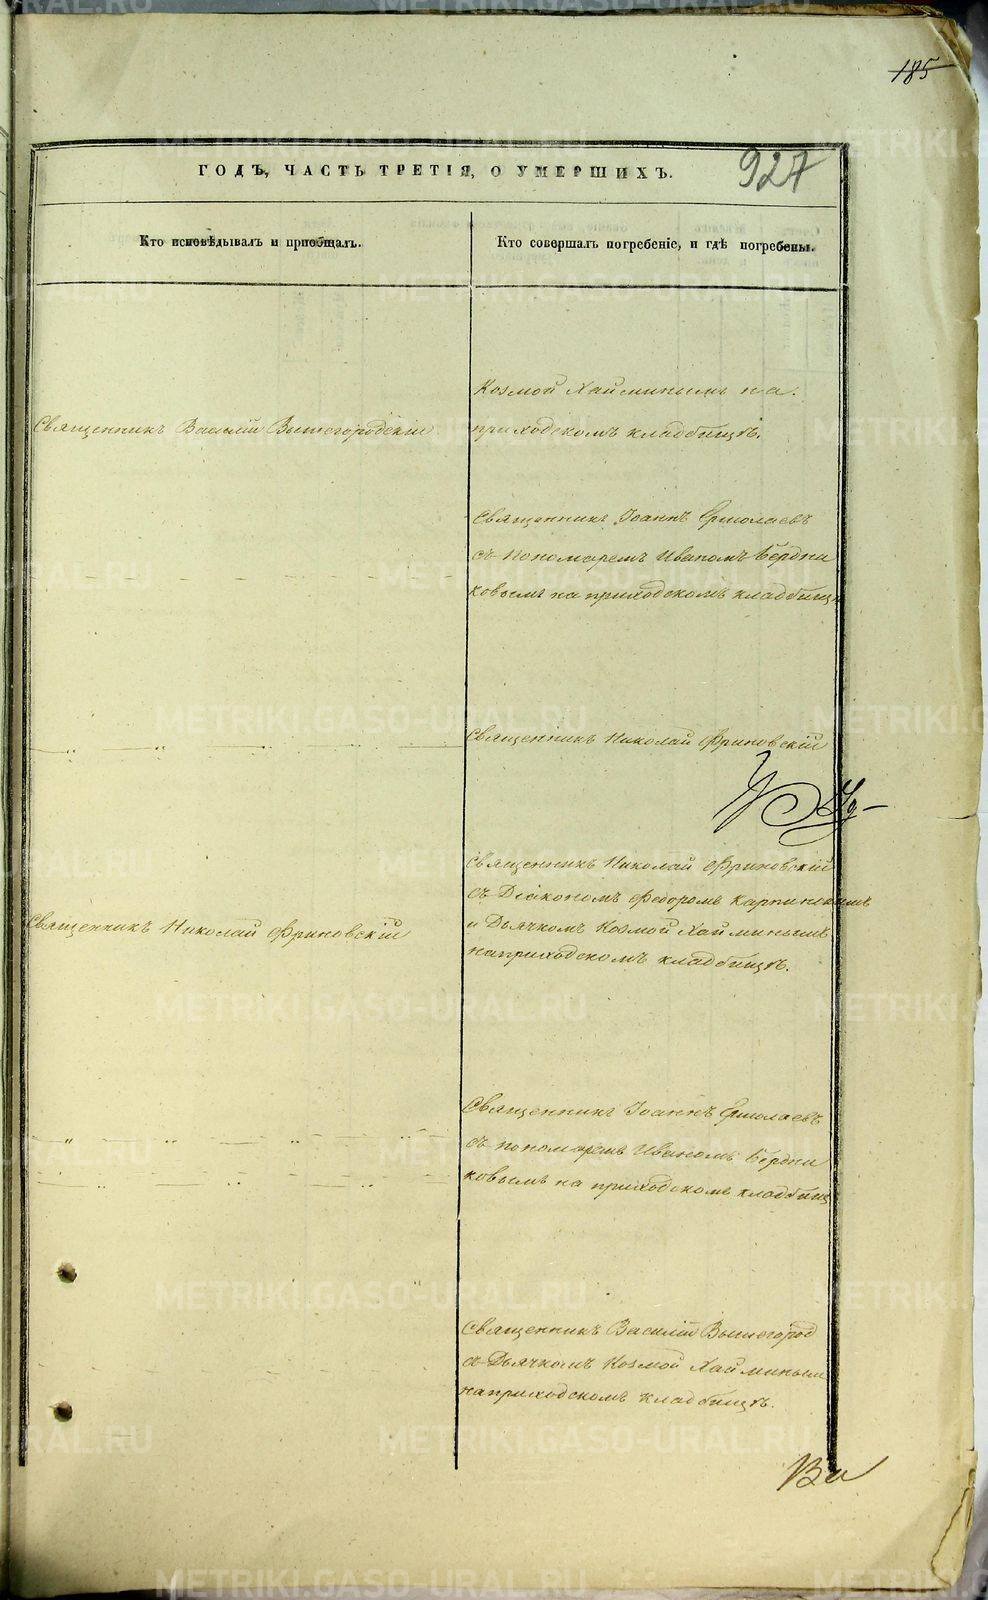 185
927
ГОДЪ, ЧАСТЬ ТРЕТІЯ, О УМЕРШИХЪ.
Кто исповѣдывалъ и приобщалъ.
Кто совершалъ погребеніе, и гдѣ погребены.
Козмой Хайминымъ на
приходскомъ кладбищѣ.
Священникъ Василій Вышегородскій
Священникъ Іоаннъ Ермолаевъ
съ Пономаремъ Иваномъ Бердни
ковымъ на приходскомъ кладбищѣ
Священникъ Николай Фриновскій
Священникъ Николай Фриновскій
съ Діакономъ Федоромъ Карпинскимъ
и Дьячкомъ Козмой Хайминымъ
на приходскомъ кладбищѣ.
Священникъ Николай Фриновскій
Священникъ Іоаннъ Ермолаевъ
съ пономаремъ Иваномъ Бердни
ковымъ на приходскомъ кладбищ
Священникъ Василій Вышегород
съ Дьячкомъ Козмой Хайминым
на приходскомъ кладбищѣ.
METRIKI.GASO-URAL.RU